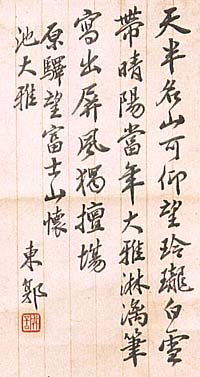 天半名山可仰望玲瓏白雪
帶晴陽當年大雅淋漓筆
寫出屏風獨擅場
原驛望富士山懷
池大雅
東郭